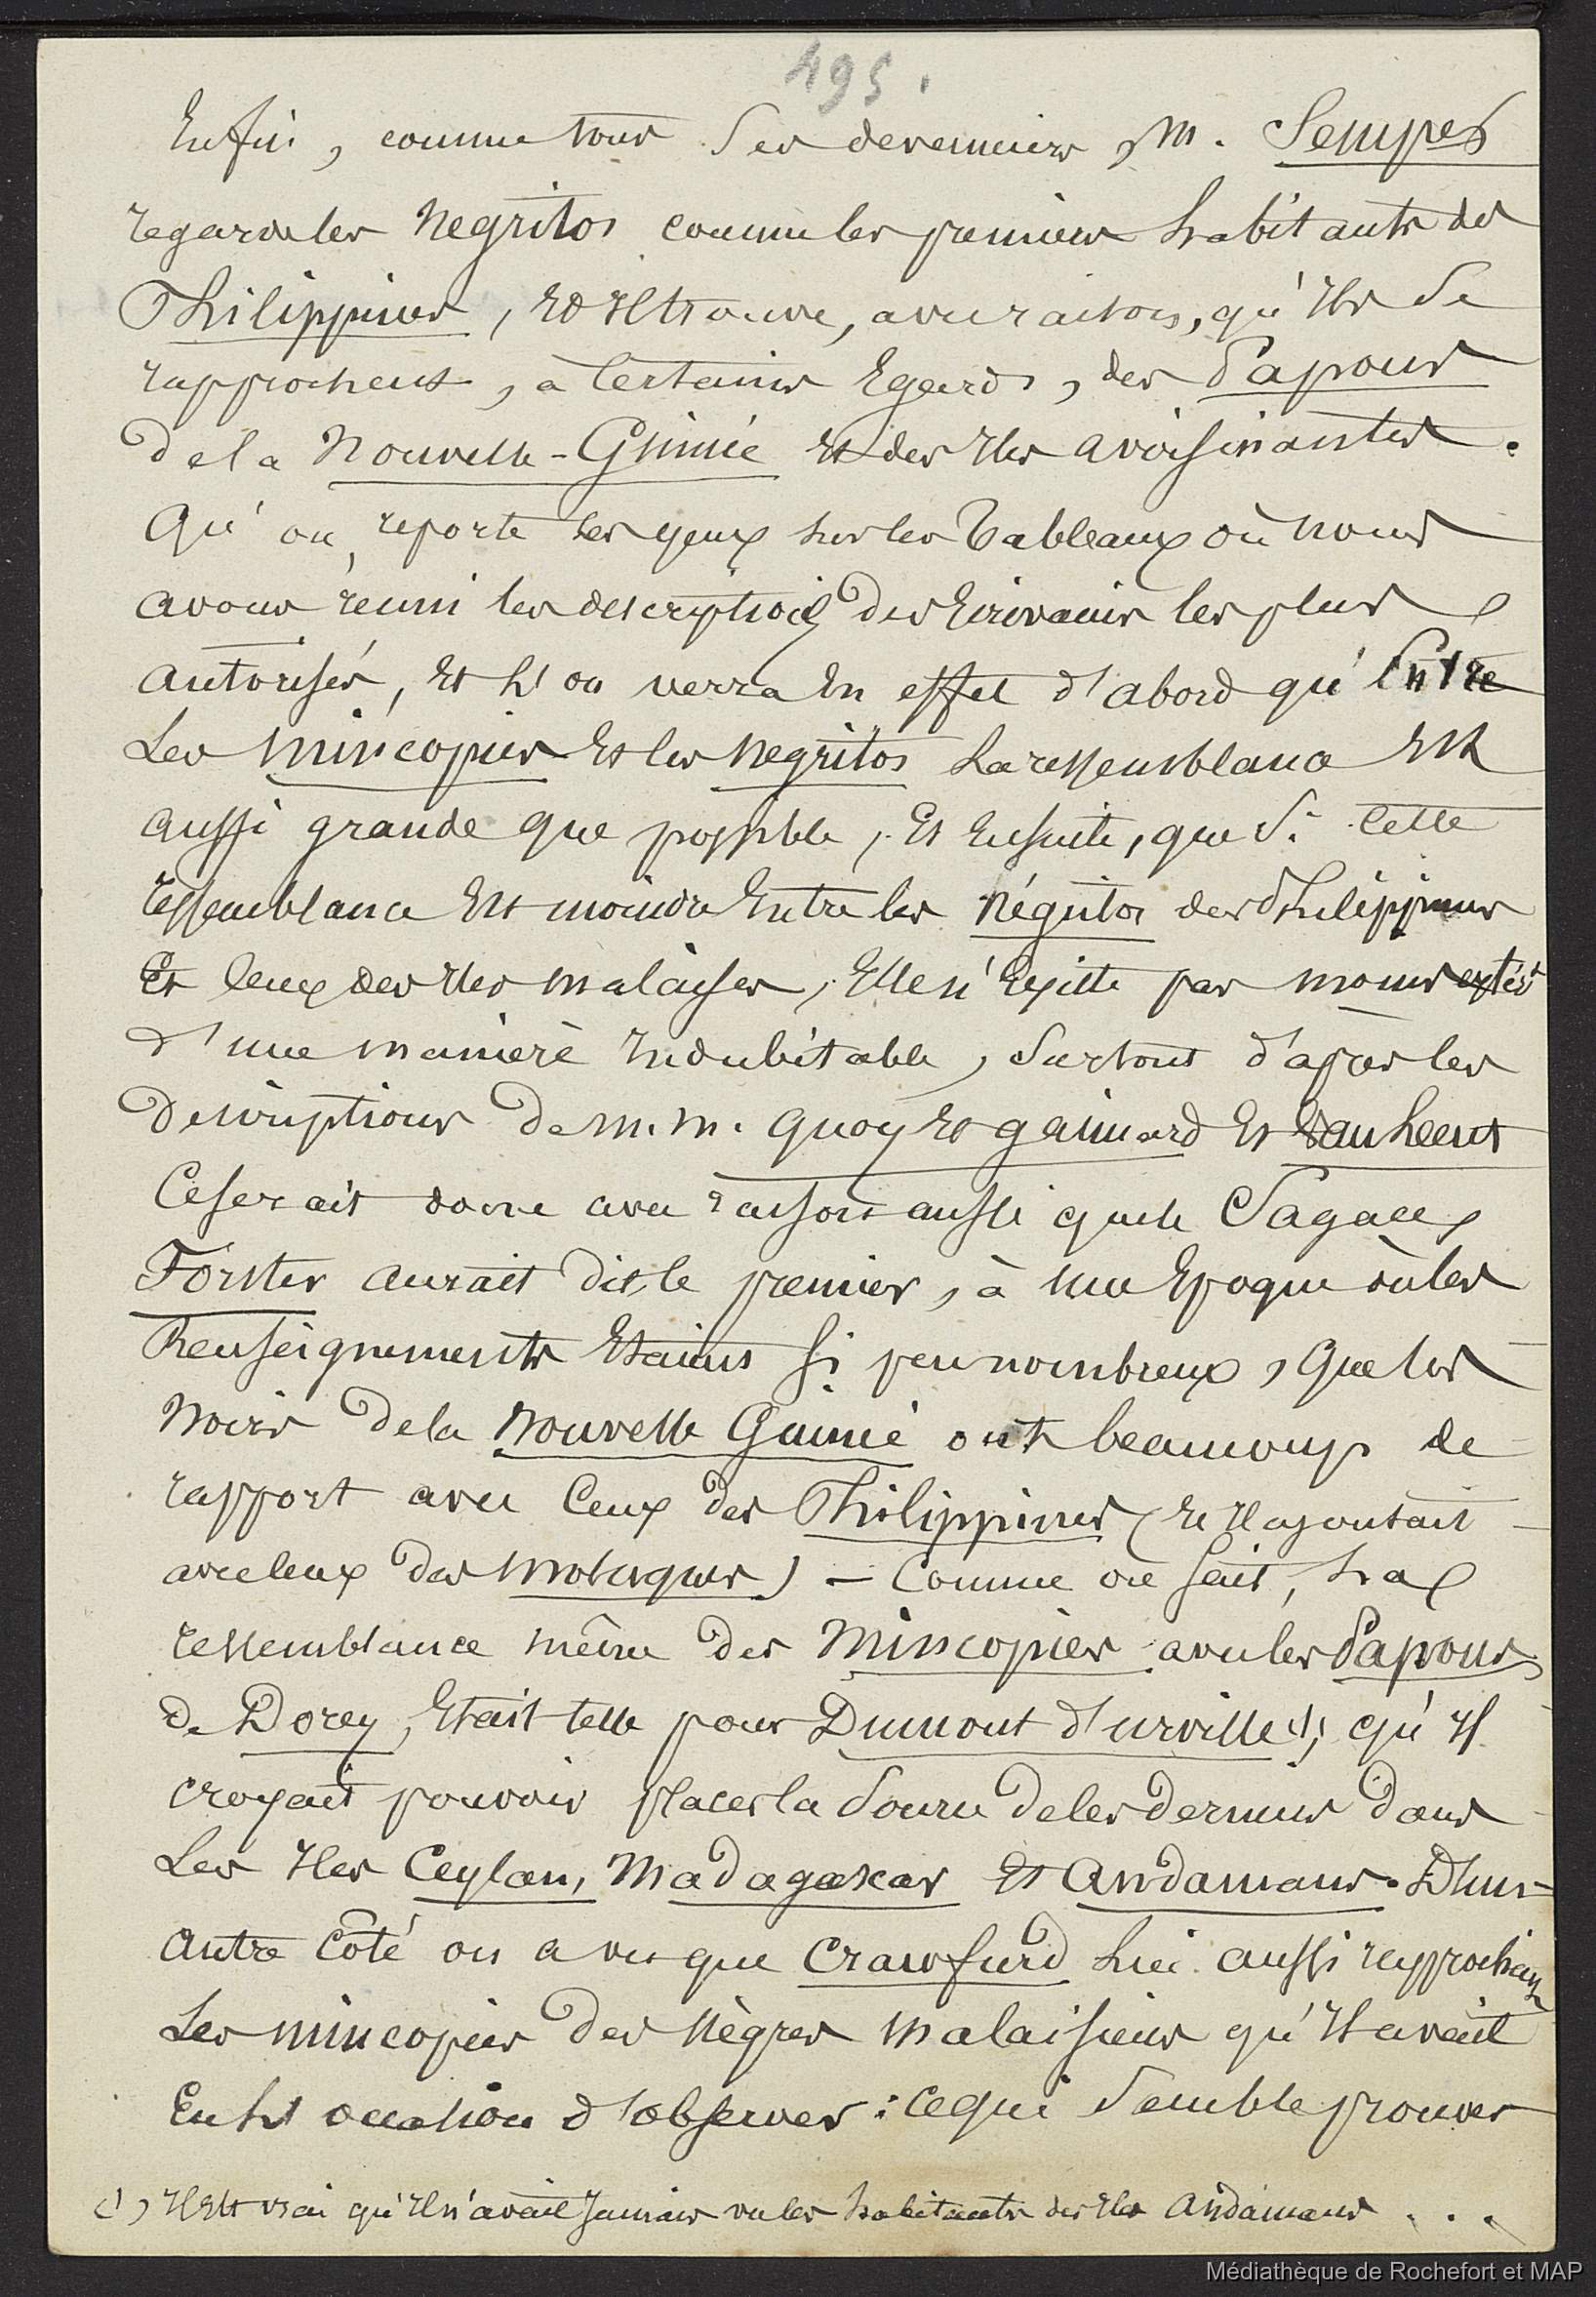 495.
Enfin, comme tous ses devanciers, M. Semper
regarde les Negritos comme les premiers habitants des
Philippines, et Il trouve, avec raison, qu'Ils se
rapprochent, à Certains Egards, des Papous
de la Nouvelle-Guinée et des Iles avoisinantes.
Qu'on reporte les yeux sur les Tableaux où nous
avons réuni les descriptions des Ecrivains les plus
autorisés, et l'on verra En effet d'abord qu'Entre
Les Mincopies Et les Negritos la ressemblance Est
aussi grande que possible, Et Ensuite, que si Cette
ressemblance Est moindre Entre les Négritos des Philippines
Et Ceux des Iles malaises, Elle n'Existe pas moins
d'une manière Indubitable, surtout d'après les
Descriptions de M.M. Quoy et gaimard Et
Ce serait donc avec raison aussi que le Sagace
Forster aurait dit, le premier, à une Epoque où les
Renseignements Etaient si peu nombreux, que les
Noirs de la Nouvelle Guinée ont beaucoup de
rapport avec Ceux des Philippines (et Il ajoutait
avec Ceux des Moluques) — Comme on sait, la
ressemblance même des Mincopies avec les Papous
de Dorey, Etait telle pour Dumont d'urville (1), qu'Il
croyait pouvoir placer la source de ces derniers dans
Les Iles Ceylan, Madagascar Et Andamans. D'un
autre Côté on a vu que Crawfurd lui aussi rapprochait
Les mincopies des Nègres Malaisiens qu'Il avait
Eu l'occasion d'observer : Ce qui semble prouver
(1) Il Est vrai qu'Il n'avait Jamais vu les habitants des Iles Andamans . . .
Médiathèque de Rochefort et MAP